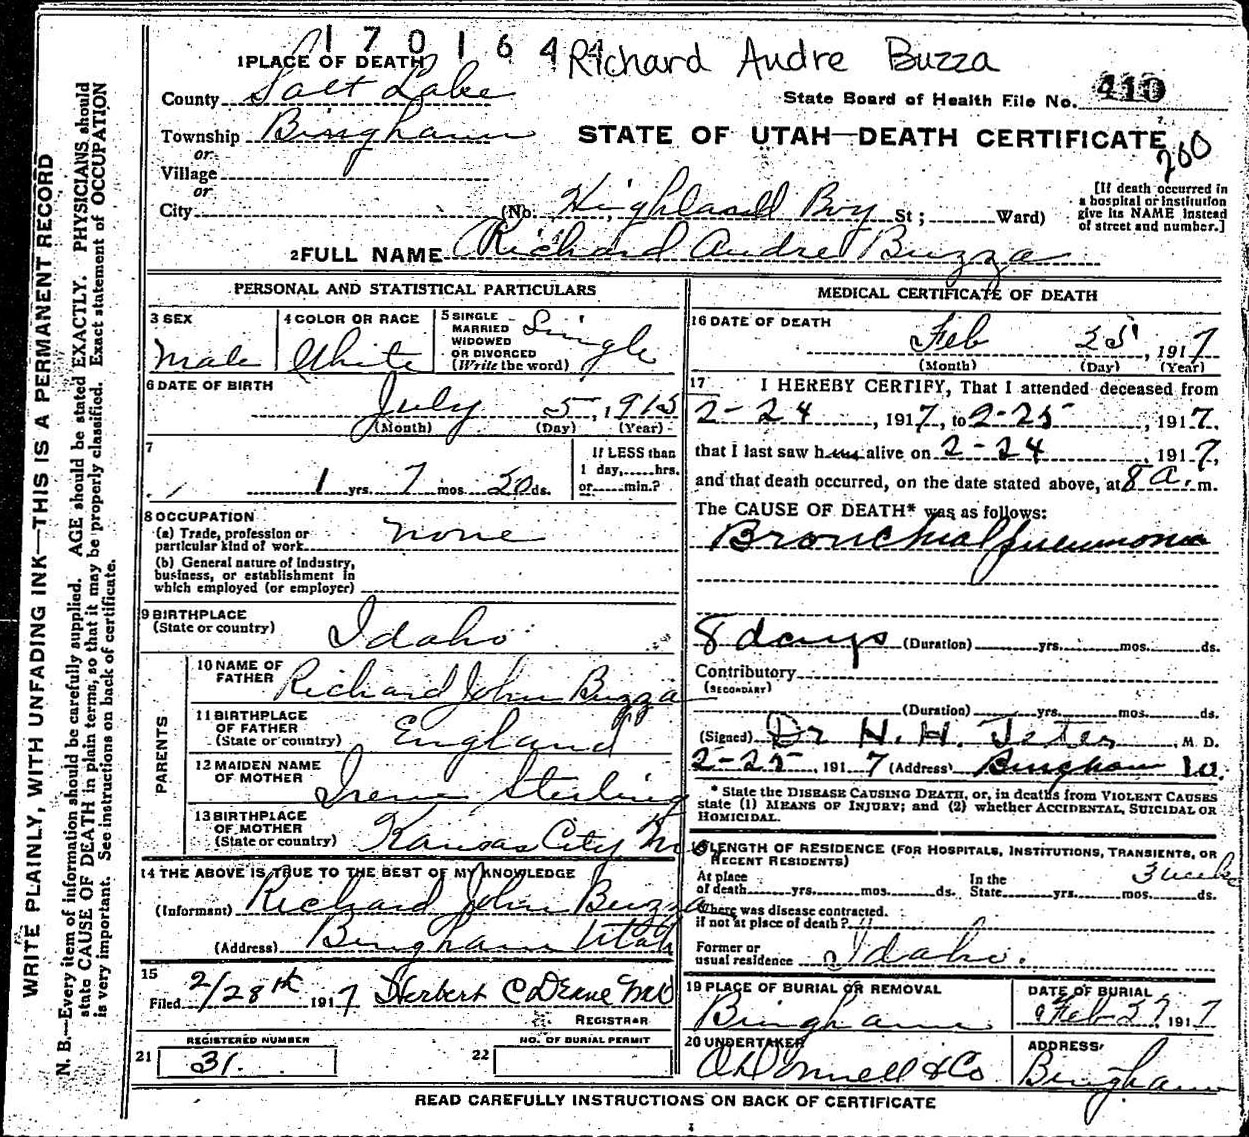 170164
Richard Andre Buzza
1 PLACE OF DEATH
County Salt Lake
State Board of Health File No. 410
Township Bingham
STATE OF UTAH—DEATH CERTIFICATE
200
or
Village
or
City (No. Highland Boy St; Ward)
[If death occurred in a hospital or institution give its NAME instead of street and number.]
2 FULL NAME Richard Andre Buzza
PERSONAL AND STATISTICAL PARTICULARS
3 SEX
Male
4 COLOR OR RACE
White
5 SINGLE MARRIED WIDOWED OR DIVORCED (Write the word)
Single
6 DATE OF BIRTH
July 5, 1915
(Month) (Day) (Year)
7
1 yrs. 7 mos. 20 ds.
If LESS than 1 day, hrs. or min.?
8 OCCUPATION
(a) Trade, profession or particular kind of work none
(b) General nature of industry, business, or establishment in which employed (or employer)
9 BIRTHPLACE
(State or country) Idaho
PARENTS
10 NAME OF FATHER Richard John Buzza
11 BIRTHPLACE OF FATHER (State or country) England
12 MAIDEN NAME OF MOTHER Irene Sterling
13 BIRTHPLACE OF MOTHER (State or country) Kansas City M
14 THE ABOVE IS TRUE TO THE BEST OF MY KNOWLEDGE
(Informant) Richard John Buzza
(Address) Bingham Utah
15
Filed 2/28th 1917 Herbert C
REGISTRAR
REGISTERED NUMBER
21 31.
NO. OF BURIAL PERMIT
22
MEDICAL CERTIFICATE OF DEATH
16 DATE OF DEATH
Feb 25, 1917
(Month) (Day) (Year)
17 I HEREBY CERTIFY, That I attended deceased from
2-24, 1917, to 2-25, 1917.
that I last saw him alive on 2-24, 1917,
and that death occurred, on the date stated above, at 8 a. m.
The CAUSE OF DEATH* was as follows:
Bronchial pneumonia
8 days (Duration) yrs. mos. ds.
Contributory
(SECONDARY)
(Duration) yrs. mos. ds.
(Signed) Dr H. H. , M D.
2-25, 1917 (Address) Bingham
* State the DISEASE CAUSING DEATH, or, in deaths from VIOLENT CAUSES state (1) MEANS OF INJURY; and (2) whether ACCIDENTAL, SUICIDAL OR HOMICIDAL.
LENGTH OF RESIDENCE (FOR HOSPITALS, INSTITUTIONS, TRANSIENTS, OR RECENT RESIDENTS)
At place of death yrs. mos. ds. In the State yrs. mos. ds. 3 weeks
Where was disease contracted. if not at place of death?
Former or usual residence Idaho.
19 PLACE OF BURIAL OR REMOVAL
Bingham
DATE OF BURIAL
Feb 27 1917
20 UNDERTAKER
O'Donnell & Co
ADDRESS
Bingham
READ CAREFULLY INSTRUCTIONS ON BACK OF CERTIFICATE
WRITE PLAINLY, WITH UNFADING INK—THIS IS A PERMANENT RECORD
N. B.—Every item of information should be carefully supplied. AGE should be stated EXACTLY. PHYSICIANS should
state CAUSE OF DEATH in plain terms, so that it may be properly classified. Exact statement of OCCUPATION
is very important. See instructions on back of certificate.